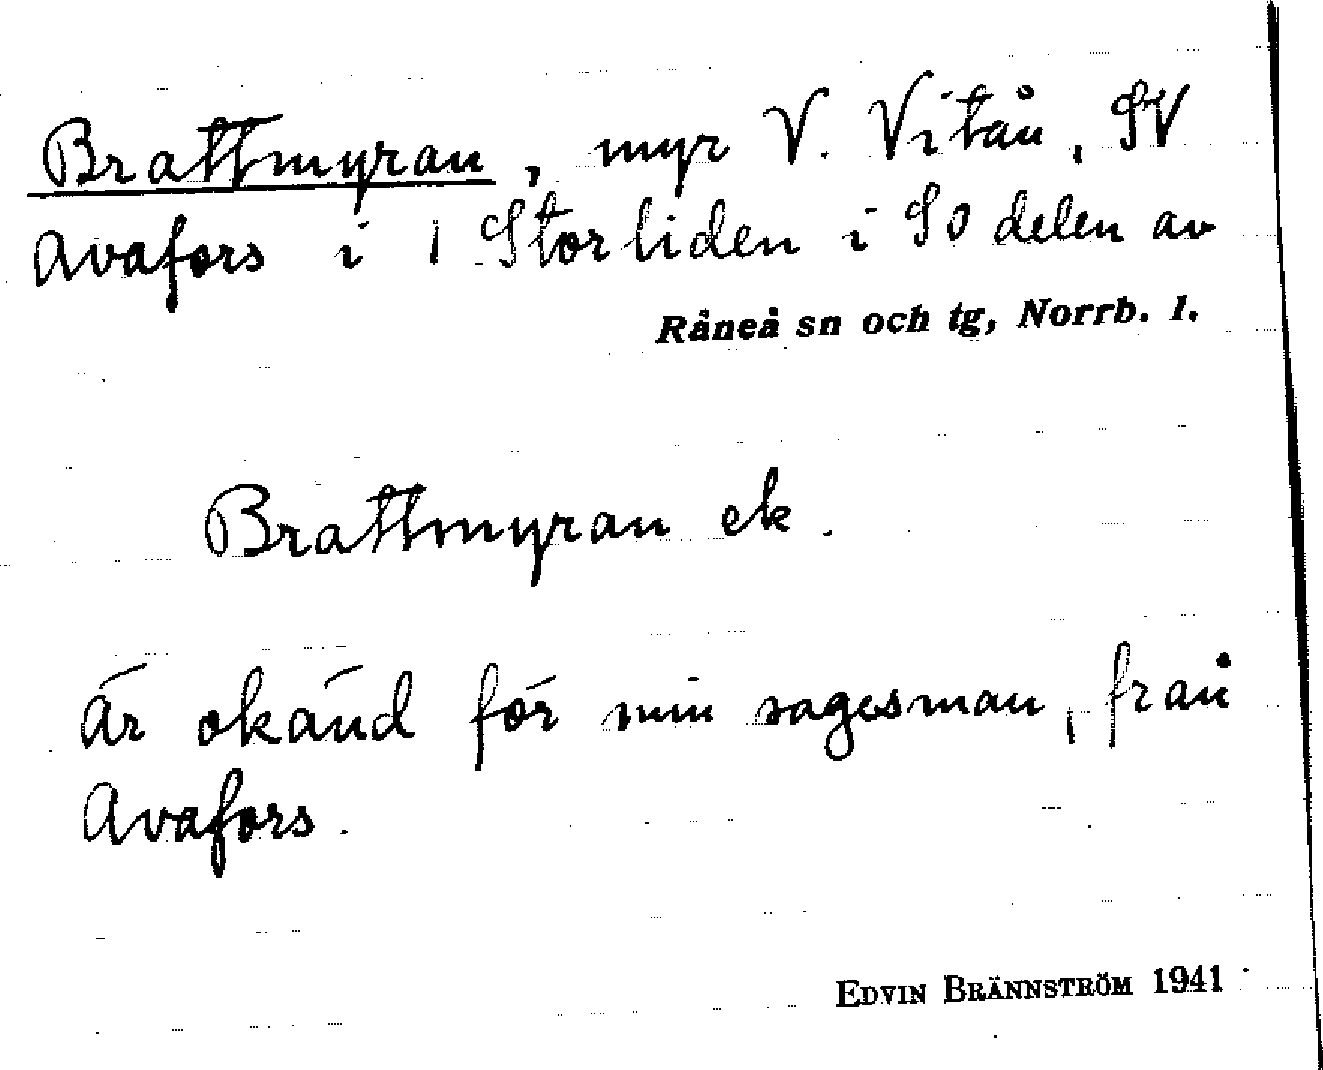 Brattmyran, myr V. Vitån, SV
Avafors i 1 Storliden i SO delen av
Råneå sn och tg, Norrb. l.
Brattmyran ek.
Är okänd för min sagesman, från
Avafors.
EDVIN BRÄNNSTRÖM 1941